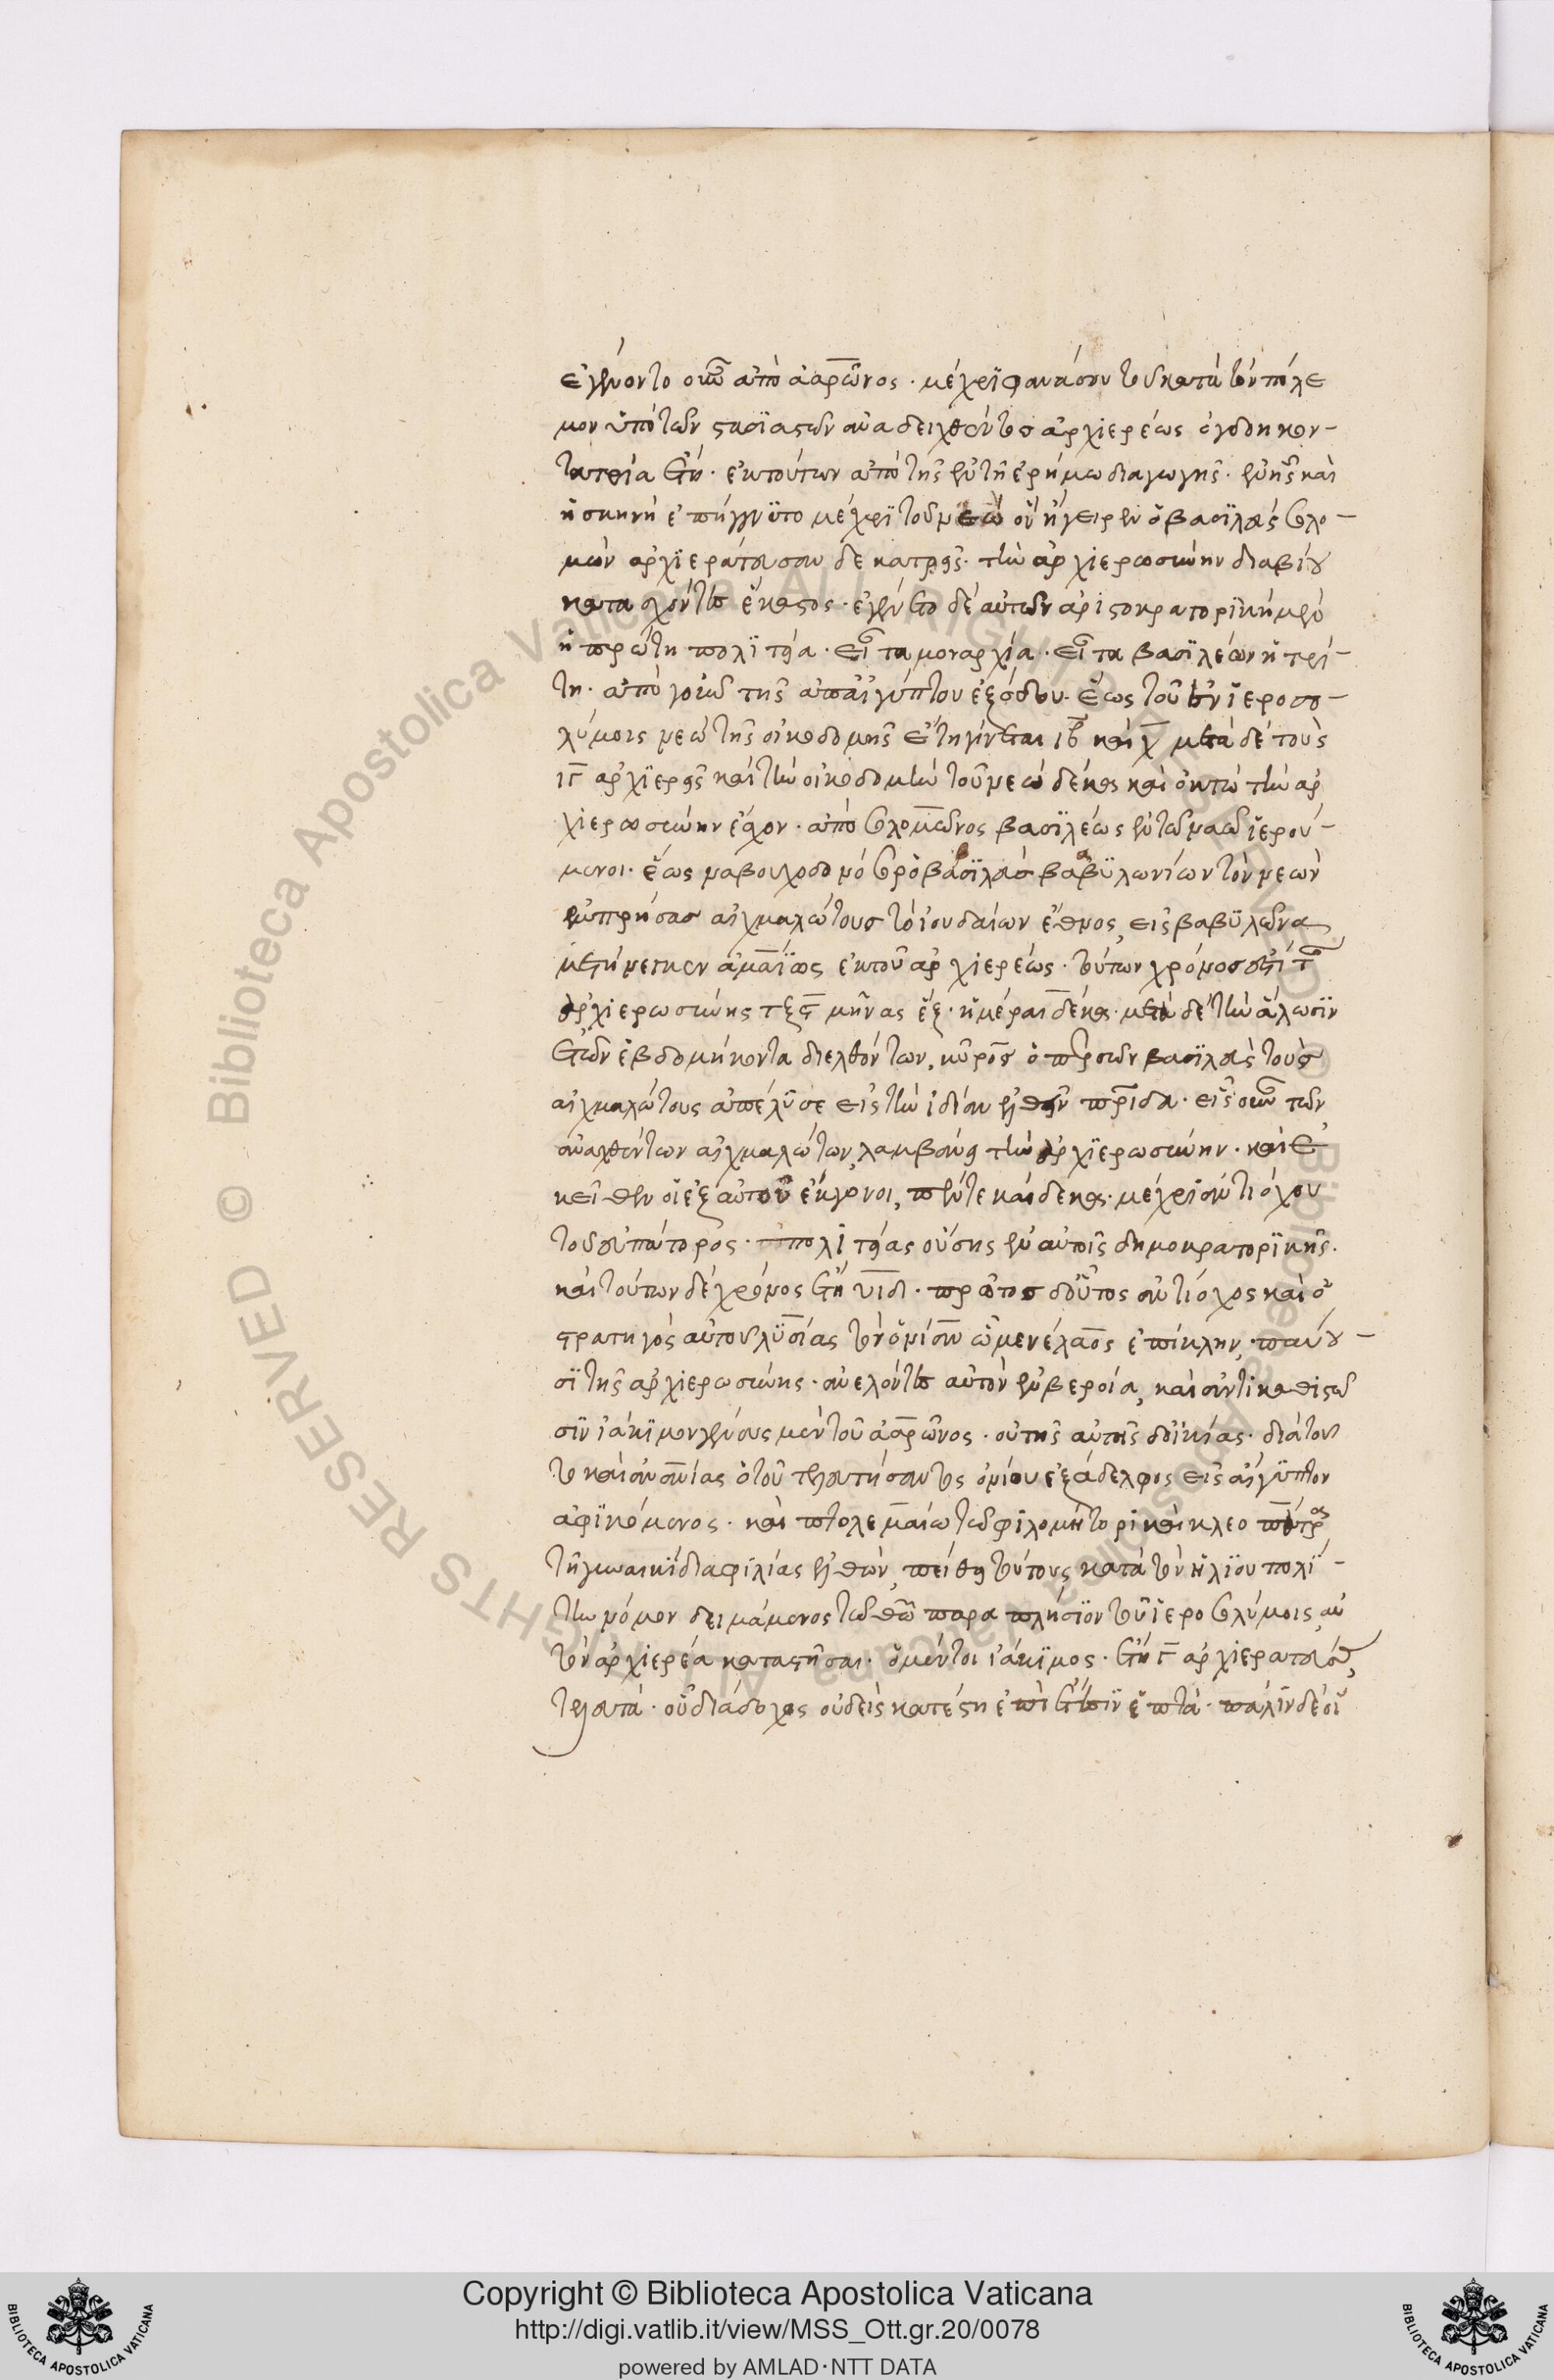 ἐγένοντο οὖν ἀπὸ ἀαρῶνος · μέχρι φανάσου τοῦ κατὰ τὸν πόλε
μον ὑπὸ τῶν στασιαστῶν ἀναδειχθέντος ἀρχιερέως ὀγδοηκον-
τατρία ἔτη · ἐκ τούτων ἀπὸ τῆς ἐν τῇ ἐρήμω διαγωγῆς · ἐν ἧς καὶ
ἡ σκηνὴ ἐπήγνυτο μέχρι τοῦ νεὼ οὗ ἤγειρεν ὁ βασιλεὺς σολο-
μὼν ἀρχιεράτευσαν δεκατρεῖς · τὴν ἀρχιερωσύνην διαβίου
κατασχόντος ἕκαστος · ἐγένετο δὲ αὐτῶν ἀριστοκρατορικὴ μὲν
ἡ πρώτη πολιτεία · εἶτα μοναρχία · εἶτα βασιλέων ἡ τρί-
τη · ἀπὸ γοῦν τῆς ἀπαἰγύπτου ἐξόδου · ἕως τοῦ ἐν ἱεροσο-
λύμοις νεὼ τῆς οἰκοδομῆς ἔτη γίνεται ιβ καὶ χ μετὰ δὲ τοὺς
ιγ ἀρχιερεῖς καὶ τὴν οἰκοδομὴν τοῦ νεὼ δέκα καὶ ὀκτὼ τὴν ἀρ
χιερωσύνην ἔσχον · ἀπὸ σολομῶνος βασιλέως ἐν τῶ ναῶ ἱερού-
μενοι · ἕως ναβουχοδονόσορ ὁ βασιλεὺς βαβυλωνίων τὸν νεὼν
ἐμπρήσας αἰχμαλώτους τὸ ἰουδαίων ἔθνος, εἰς βαβυλῶνα
μετήνεγκεν ἀναιτίως ἐκ τοῦ ἀρχιερέως · τούτων χρόνος ἐπὶ τῆς
ἀρχιερωσύνης τξϛ μῆνας ἕξ · ἡμέραι δέκα · μετὰ δὲ τὴν ἅλωσιν
ἐτῶν ἑβδομήκοντα διελθόντων, κῦρος ὁ περσῶν βασιλεὺς τοὺς
αἰχμαλώτους ἀπέλυσε εἰς τὴν ἰδίαν ἐλθεῖν πρίδα · εἷς οὖν τῶν
ἀναχθέντων αἰχμαλώτων, λαμβάνει τὴν ἀρχιερωσύνην · καὶ ἐ
κεῖθεν οἱ ἐξ αὐτοῦ ἔκγονοι, πέντε καὶ δέκα · μέχρι ἀντιόχου
τοῦ εὐπάτορος · πολιτείας οὔσης ἐν αὐτοῖς δημοκρατορικῆς ·
καὶ τούτων δὲ χρόνος ἔτη υιδ · πρῶτος δ' οὗτος ἀντίοχος καὶ ὁ
στρατηγὸς αὐτοῦ λυσίας τὸν ὀνίαν ὧ μενέλαος ἐπίκλην, παύου-
σι τῆς ἀρχιερωσύνης · ἀνελόντες αὐτὸν ἐν βεροία, καὶ ἀντικαθιστῶ
σιν ἰάκιμον γένους μὲν τοῦ ἀαρῶνος · οὐ τῆς αὐτῆς δ' οἰκίας · διὰ τοῦ
το καὶ ἀνανίας ὁ τοῦ τελευτήσαντος ὀνίου ἐξάδελφος εἰς αἴγυπτον
ἀφικόμενος · καὶ πτολεμαίω τῶ φιλομήτορι καὶ κλεοπάτρα
τῇ γυναικὶ διαφιλίας ἐλθὼν, πείθει τούτους κατὰ τὸν ἡλίου πολί-
την νόμον δειμάμενος τῶ θεῶ παραπλήσιον τοῦ ἱεροσολύμοις, αὐ
τὸν ἀρχιερέα καταστῆσαι · ὁ μέντοι ἰάκιμος · ἔτη γ ἀρχιερατεύσας,
τελευτᾶ · οὗ διάδοχος οὐδεὶς κατέστη ἐπὶ ἔτεσιν ἑπτὰ · πάλιν δὲ οἱ
Copyright © Biblioteca Apostolica Vaticana
http://digi.vatlib.it/view/MSS_Ott.gr.20/0078
powered by AMLAD·NTT DATA